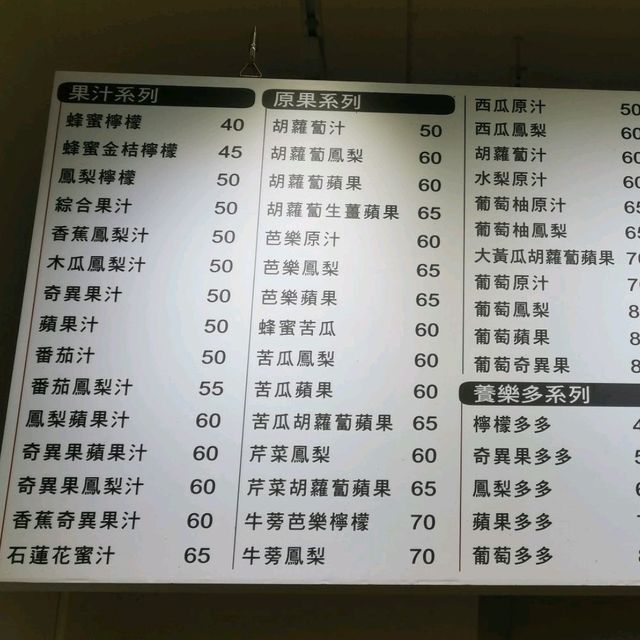 果汁系列
蜂蜜檸檬 40
蜂蜜金桔檸檬 45
鳳梨檸檬 50
綜合果汁 50
香蕉鳳梨汁 50
木瓜鳳梨汁 50
奇異果汁 50
蘋果汁 50
番茄汁 50
番茄鳳梨汁 55
鳳梨蘋果汁 60
奇異果蘋果汁 60
奇異果鳳梨汁 60
香蕉奇異果汁 60
石蓮花蜜汁 65
原果系列
胡蘿蔔汁 50
胡蘿蔔鳳梨 60
胡蘿蔔蘋果 60
胡蘿蔔生薑蘋果 65
芭樂原汁 60
芭樂鳳梨 65
芭樂蘋果 65
蜂蜜苦瓜 60
苦瓜鳳梨 60
苦瓜蘋果 60
苦瓜胡蘿蔔蘋果 65
芹菜鳳梨 60
芹菜胡蘿蔔蘋果 65
牛蒡芭樂檸檬 70
牛蒡鳳梨 70
西瓜原汁 50
西瓜鳳梨 60
胡蘿蔔汁 60
水梨原汁 60
葡萄柚原汁 65
葡萄柚鳳梨 65
大黃瓜胡蘿蔔蘋果
葡萄原汁
葡萄鳳梨
葡萄蘋果
葡萄奇異果
養樂多系列
檸檬多多
奇異果多多
鳳梨多多
蘋果多多
葡萄多多